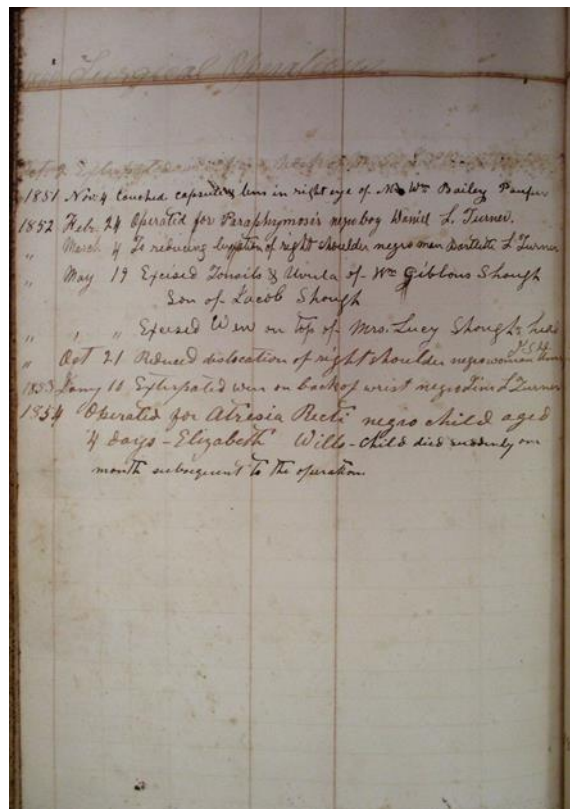 Surgical Operations
Extirpated
1851 Nov 4 Couched capsule & lens in right eye of Mr Wm Bailey Pauper
1852 Febr. 24 Operated for Paraphymosis negro boy Daniel L. Turner.
" March 4 To reducing luxation of right shoulder negro man Bartlett L Turner
" May 19 Excised Tonsils & Uvula of Wm Gibbons Shough
Son of Jacob Shough
" " " Excised Wen on top of Mrs. Lucy Shough's head
" Oct 21 Reduced dislocation of right shoulder negro woman
1853 Jany 10, Exterpated wen on back of wrist negro L Turner
1854 Operated for Atresia Recti negro child aged
4 days - Elizabeth Wills - child died suddenly one
month subsequent to the operation